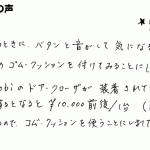 の声
★
のときに、バタンと音がして気になる
のゴム・クッションを付けてみることにし
obiのドア・クローザが装着されて
るとなると¥10,000前後/1台
ので、ゴム・クッションを使うことにします